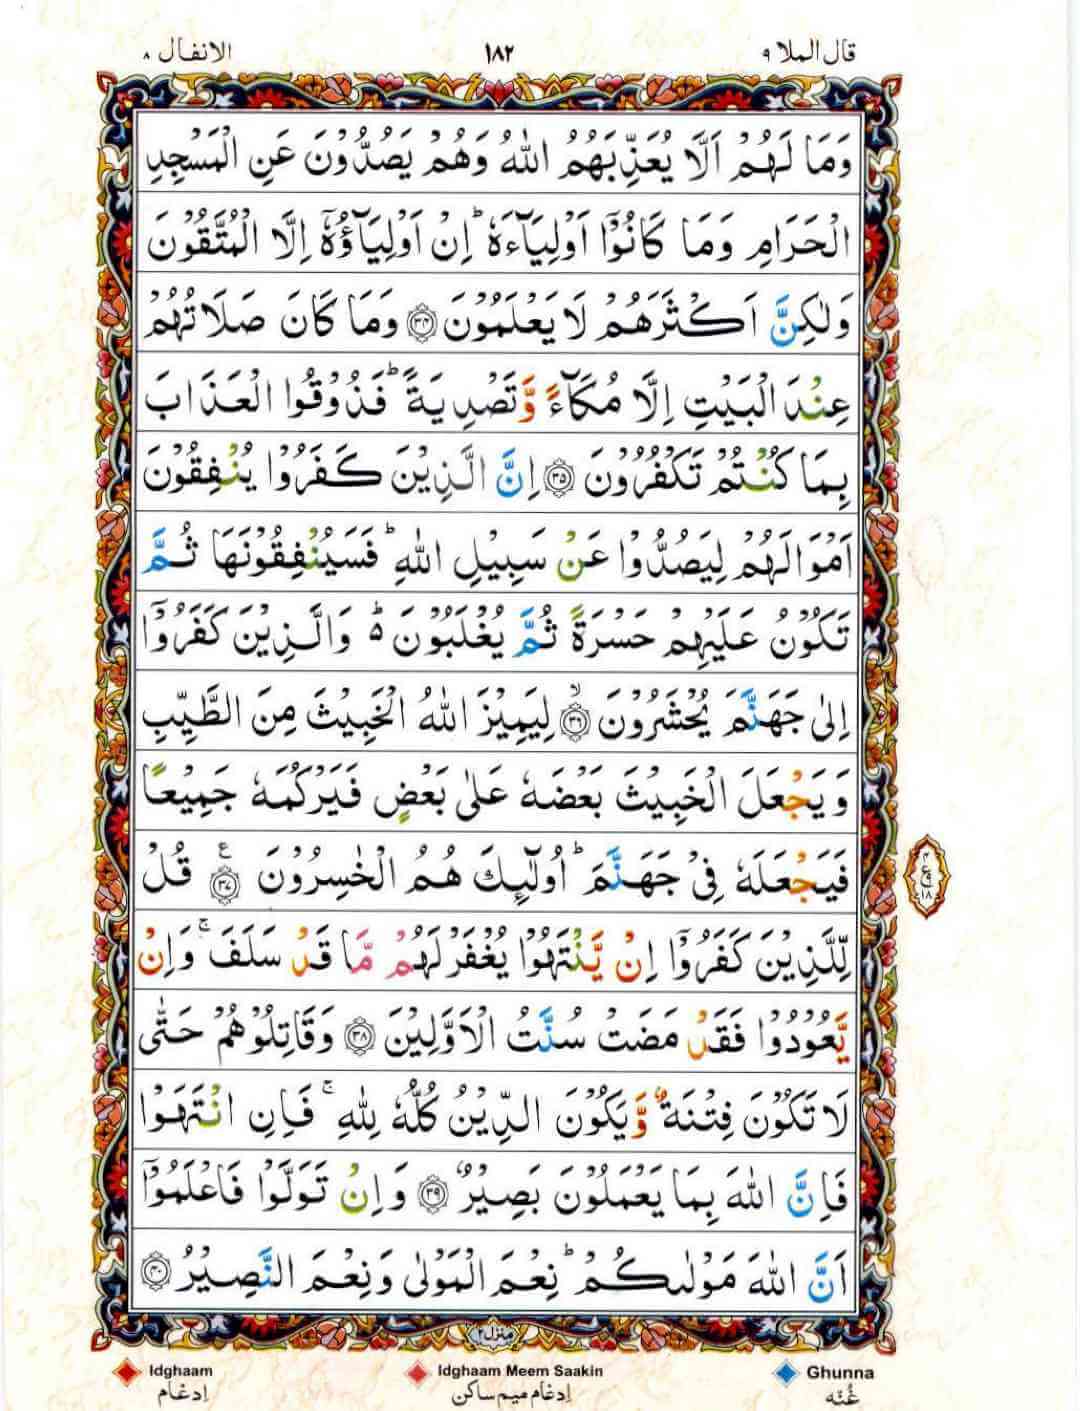 قال الملا ٩ ١٨٢ الانفال ٨
وَمَا لَهُمْ اَلَّا يُعَذِّبَهُمُ اللّٰهُ وَهُمْ يَصُدُّوْنَ عَنِ الْمَسْجِدِ
الْحَرَامِ وَمَا كَانُوْۤا اَوْلِيَآءَهٗ ؕ اِنْ اَوْلِيَآؤُهٗۤ اِلَّا الْمُتَّقُوْنَ
وَلٰكِنَّ اَكْثَرَهُمْ لَا يَعْلَمُوْنَ ﴿۳۴﴾ وَمَا كَانَ صَلَاتُهُمْ
عِنْدَ الْبَيْتِ اِلَّا مُكَآءً وَّتَصْدِيَةً ؕ فَذُوْقُوا الْعَذَابَ
بِمَا كُنْتُمْ تَكْفُرُوْنَ ﴿۳۵﴾ اِنَّ الَّذِيْنَ كَفَرُوْا يُنْفِقُوْنَ
اَمْوَالَهُمْ لِيَصُدُّوْا عَنْ سَبِيْلِ اللّٰهِ ؕ فَسَيُنْفِقُوْنَهَا ثُمَّ
تَكُوْنُ عَلَيْهِمْ حَسْرَةً ثُمَّ يُغْلَبُوْنَ ؕ۬ وَالَّذِيْنَ كَفَرُوْۤا
اِلٰى جَهَنَّمَ يُحْشَرُوْنَ ﴿ۙ۳۶﴾ لِيَمِيْزَ اللّٰهُ الْخَبِيْثَ مِنَ الطَّيِّبِ
وَيَجْعَلَ الْخَبِيْثَ بَعْضَهٗ عَلٰى بَعْضٍ فَيَرْكُمَهٗ جَمِيْعًا
فَيَجْعَلَهٗ فِىْ جَهَنَّمَ ؕ اُولٰٓئِكَ هُمُ الْخٰسِرُوْنَ ﴿۳۷﴾ ع قُلْ
لِّلَّذِيْنَ كَفَرُوْۤا اِنْ يَّنْتَهُوْا يُغْفَرْ لَهُمْ مَّا قَدْ سَلَفَ ۚ وَاِنْ
يَّعُوْدُوْا فَقَدْ مَضَتْ سُنَّتُ الْاَوَّلِيْنَ ﴿۳۸﴾ وَقَاتِلُوْهُمْ حَتّٰى
لَا تَكُوْنَ فِتْنَةٌ وَّيَكُوْنَ الدِّيْنُ كُلُّهٗ لِلّٰهِ ۚ فَاِنِ انْتَهَوْا
فَاِنَّ اللّٰهَ بِمَا يَعْمَلُوْنَ بَصِيْرٌ ﴿۳۹﴾ وَاِنْ تَوَلَّوْا فَاعْلَمُوْۤا
اَنَّ اللّٰهَ مَوْلٰىكُمْ ؕ نِعْمَ الْمَوْلٰى وَنِعْمَ النَّصِيْرُ ﴿۴۰﴾
منزل ٢
Idghaam Idghaam Meem Saakin Ghunna
اِدغام اِدغام میم ساکن غُنّه